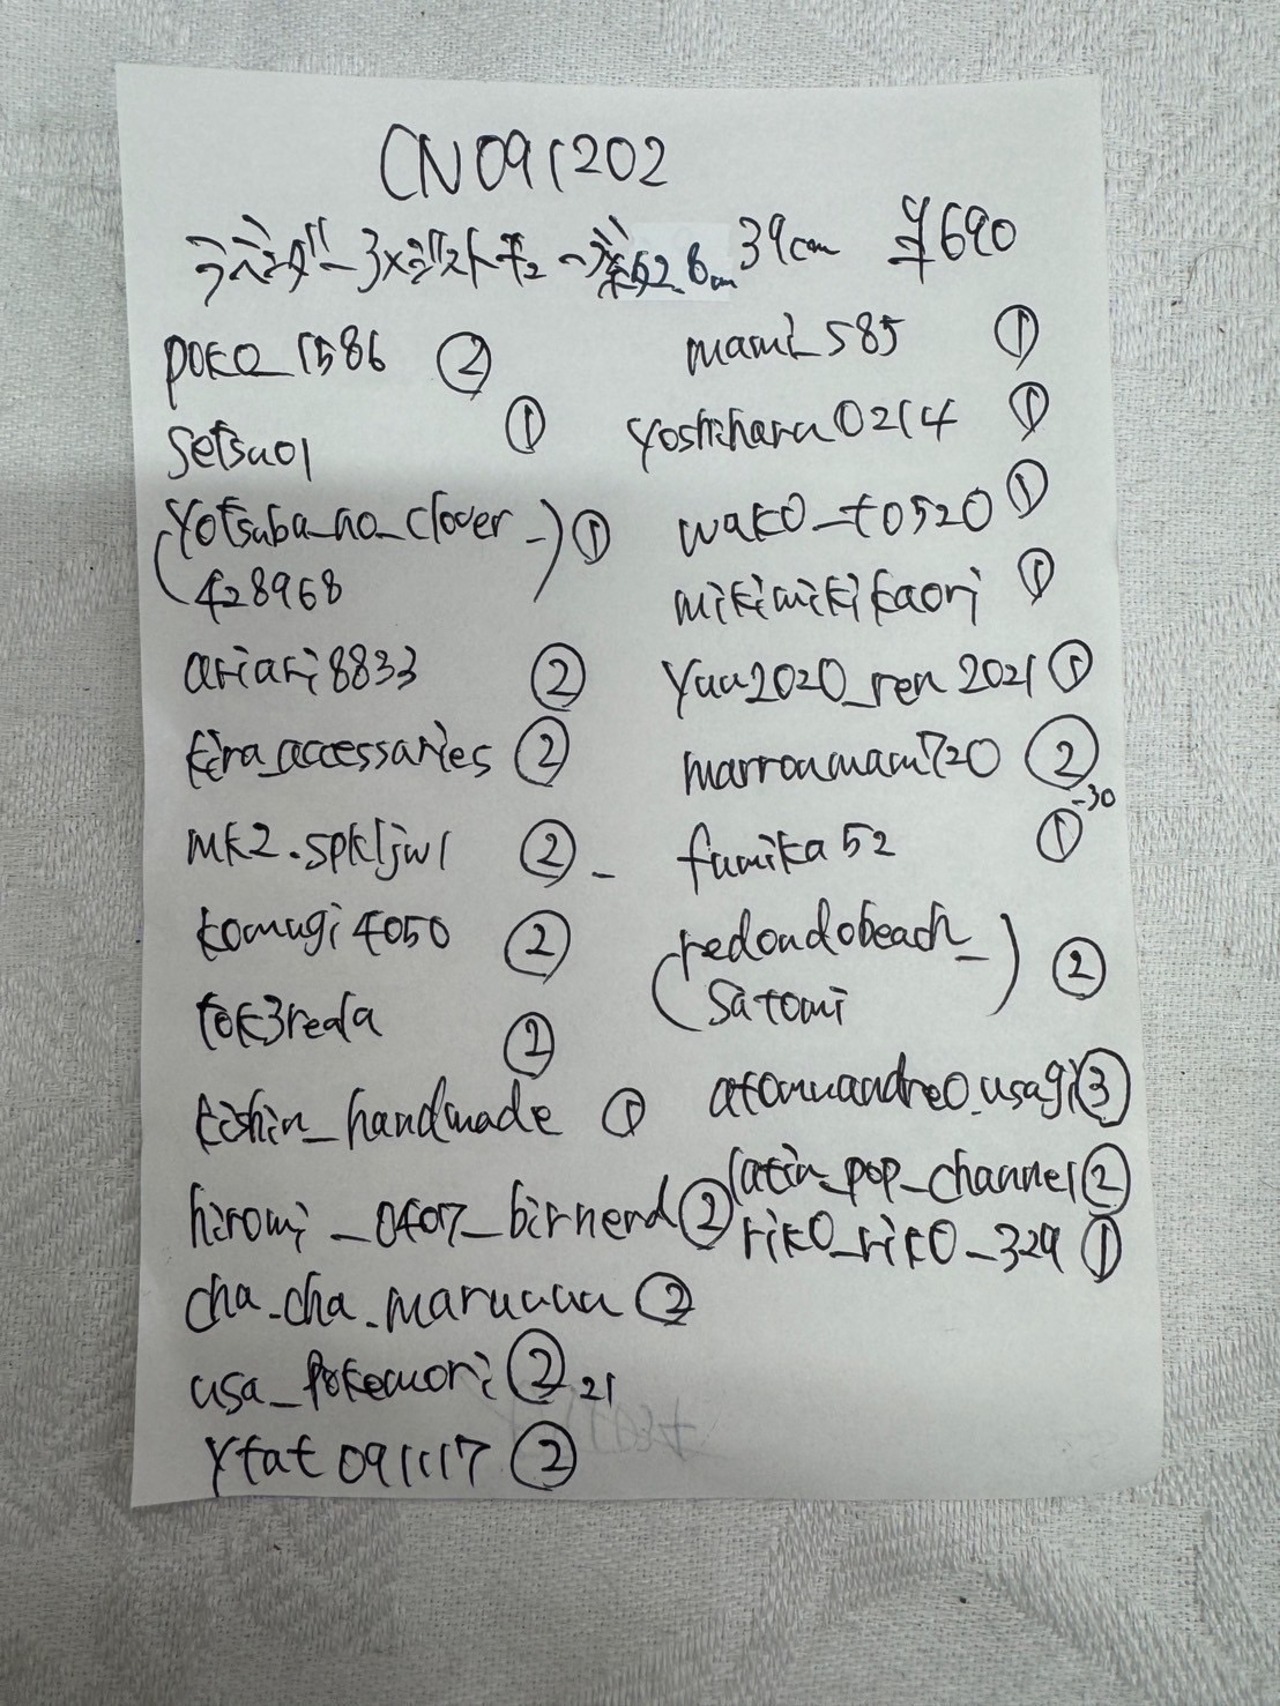 CN091202
ラベンダーアメジストチューブ 約2.6cm 39cm ¥690
poko_1586 ②
setsu01 ①
(yotsuba_no_clover_
428968) ①
ariari8833 ②
kira_accessaries ②
mk2.spkljw1 ② -
komugi4050 ②
tok3reda ②
kishin_handmade ①
hiromi_0407_birnend ②
cha.cha.maruuuu ②
usa_pokemori ② 21
ytat091117 ②
mami_585 ①
yoshiharu0214 ①
wako_t0520 ①
mikimikikaori ①
yuu2020_ren2021 ①
marronmami720 ②
-30
fumika52 ①
(redondobeach_
satomi) ②
atomuandreo.usagi ③
latin_pop_channel ②
riko_riko_329 ①